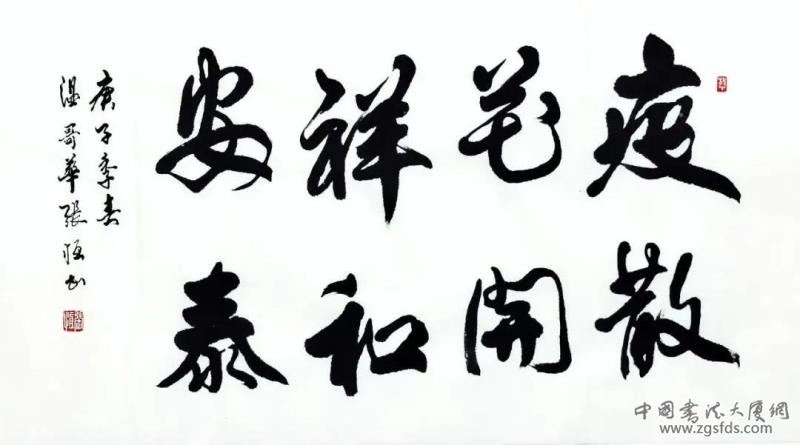 疫散
花開
祥和
安泰
庚子季春
温哥華張恒书
中国书法大厦網
www.zgsfds.com